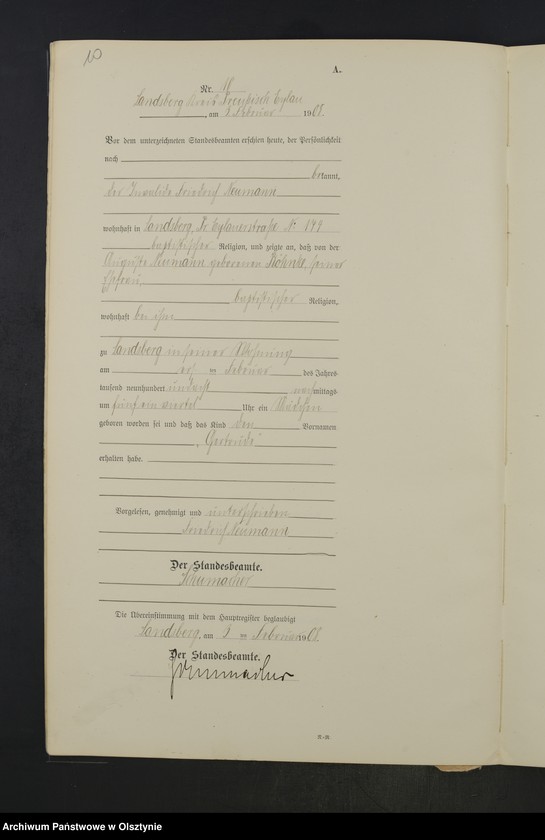 10
A.
Nr. 18
Landsberg Kreis Preußisch Eylau
, am Februar 1908.
Vor dem unterzeichneten Standesbeamten erschien heute, der Persönlichkeit
nach
bekannt,
der Invalide Neumann
wohnhaft in Landsberg, Pr. Eylauerstraße N 149
baptistischer Religion, und zeigte an, daß von der
Auguste Neumann geborenen seiner
Ehefrau,
baptistischer Religion,
wohnhaft bei ihm
zu Landsberg in seiner Wohnung
am Februar des Jahres
tausend neunhundert und acht nachmittags
um fünf ein viertel Uhr ein Mädchen
geboren worden sei und daß das Kind den Vornamen
Gertrude
erhalten habe.
Vorgelesen, genehmigt und unterschrieben
Neumann
Der Standesbeamte.
Schumacher
Die Übereinstimmung mit dem Hauptregister beglaubigt
Landsberg, am Februar 1908.
Der Standesbeamte.
Schumacher
Archiwum Państwowe w Olsztynie